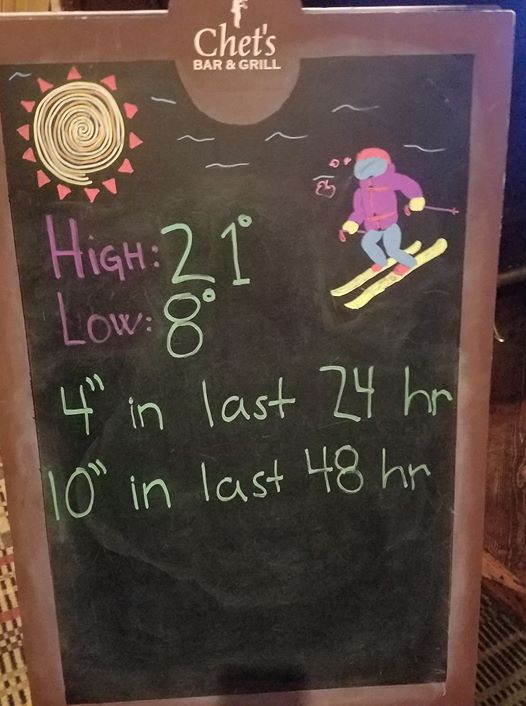 Chet's
BAR & GRILL
HIGH: 21°
LOW: 8°
4" in last 24 hr
10" in last 48 hr